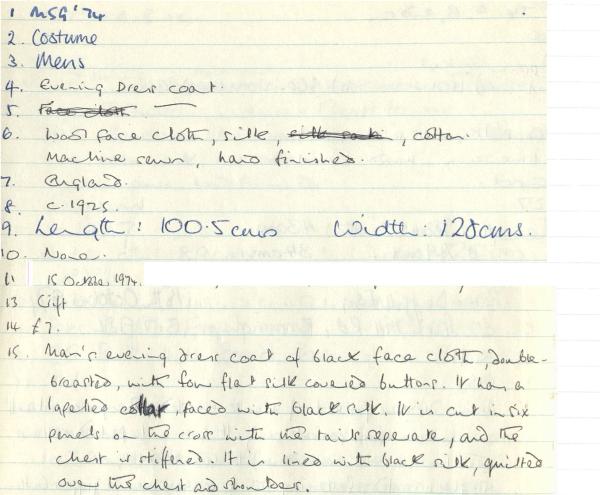 1 MSG '74
2. Costume
3. Mens
4. Evening Dress coat.
5. Face cloth
6. Wool face cloth, silk, silk , cotton.
Machine sewn, hand finished.
7. England.
8. c. 1925.
9. Length: 100.5cms Width: 128cms.
10. None.
11 15 October 1974.
13 Gift
14 £7.
15. Man's evening dress coat of black face cloth, double-
breasted, with four flat silk covered buttons. It has a
lapelled collar, faced with black silk. It is cut in six
panels on the cross with the tails seperate, and the
chest is stiffened. It is lined with black silk, quilted
over the chest and shoulders.